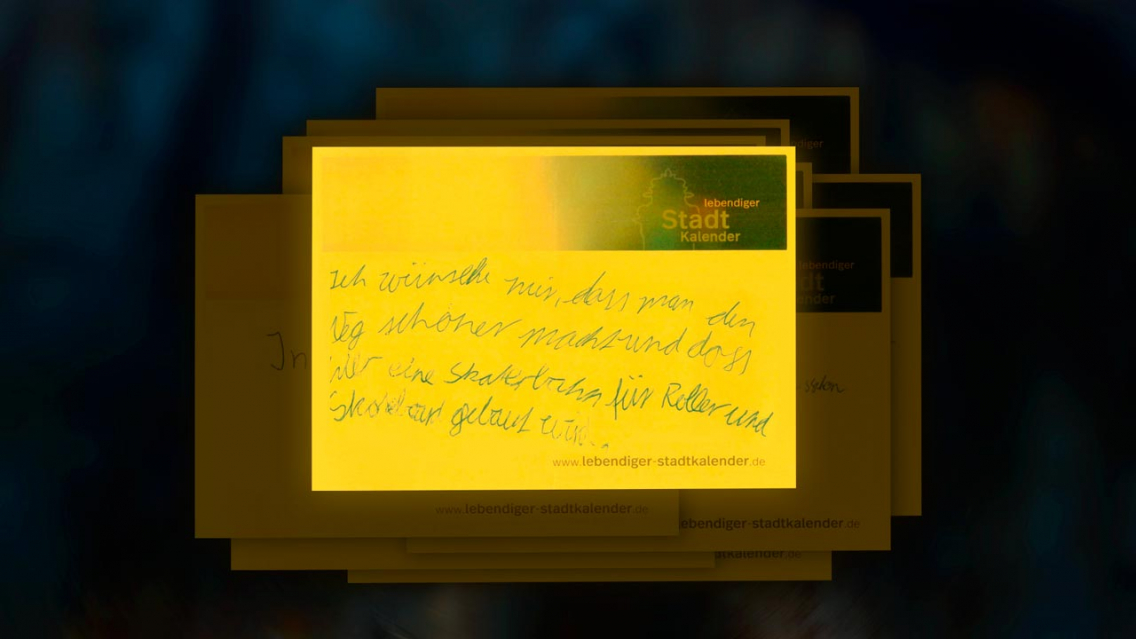 lebendiger
Stadt
Kalender
Ich wünsche mir, dass man den
Weg schöner macht und dass
hier eine Skaterbahn für Roller und
Skateboard gebaut wird.
www.lebendiger-stadtkalender.de
In
www.lebendiger-stadtkalender.de
lebendiger
lebendiger-stadtkalender.de